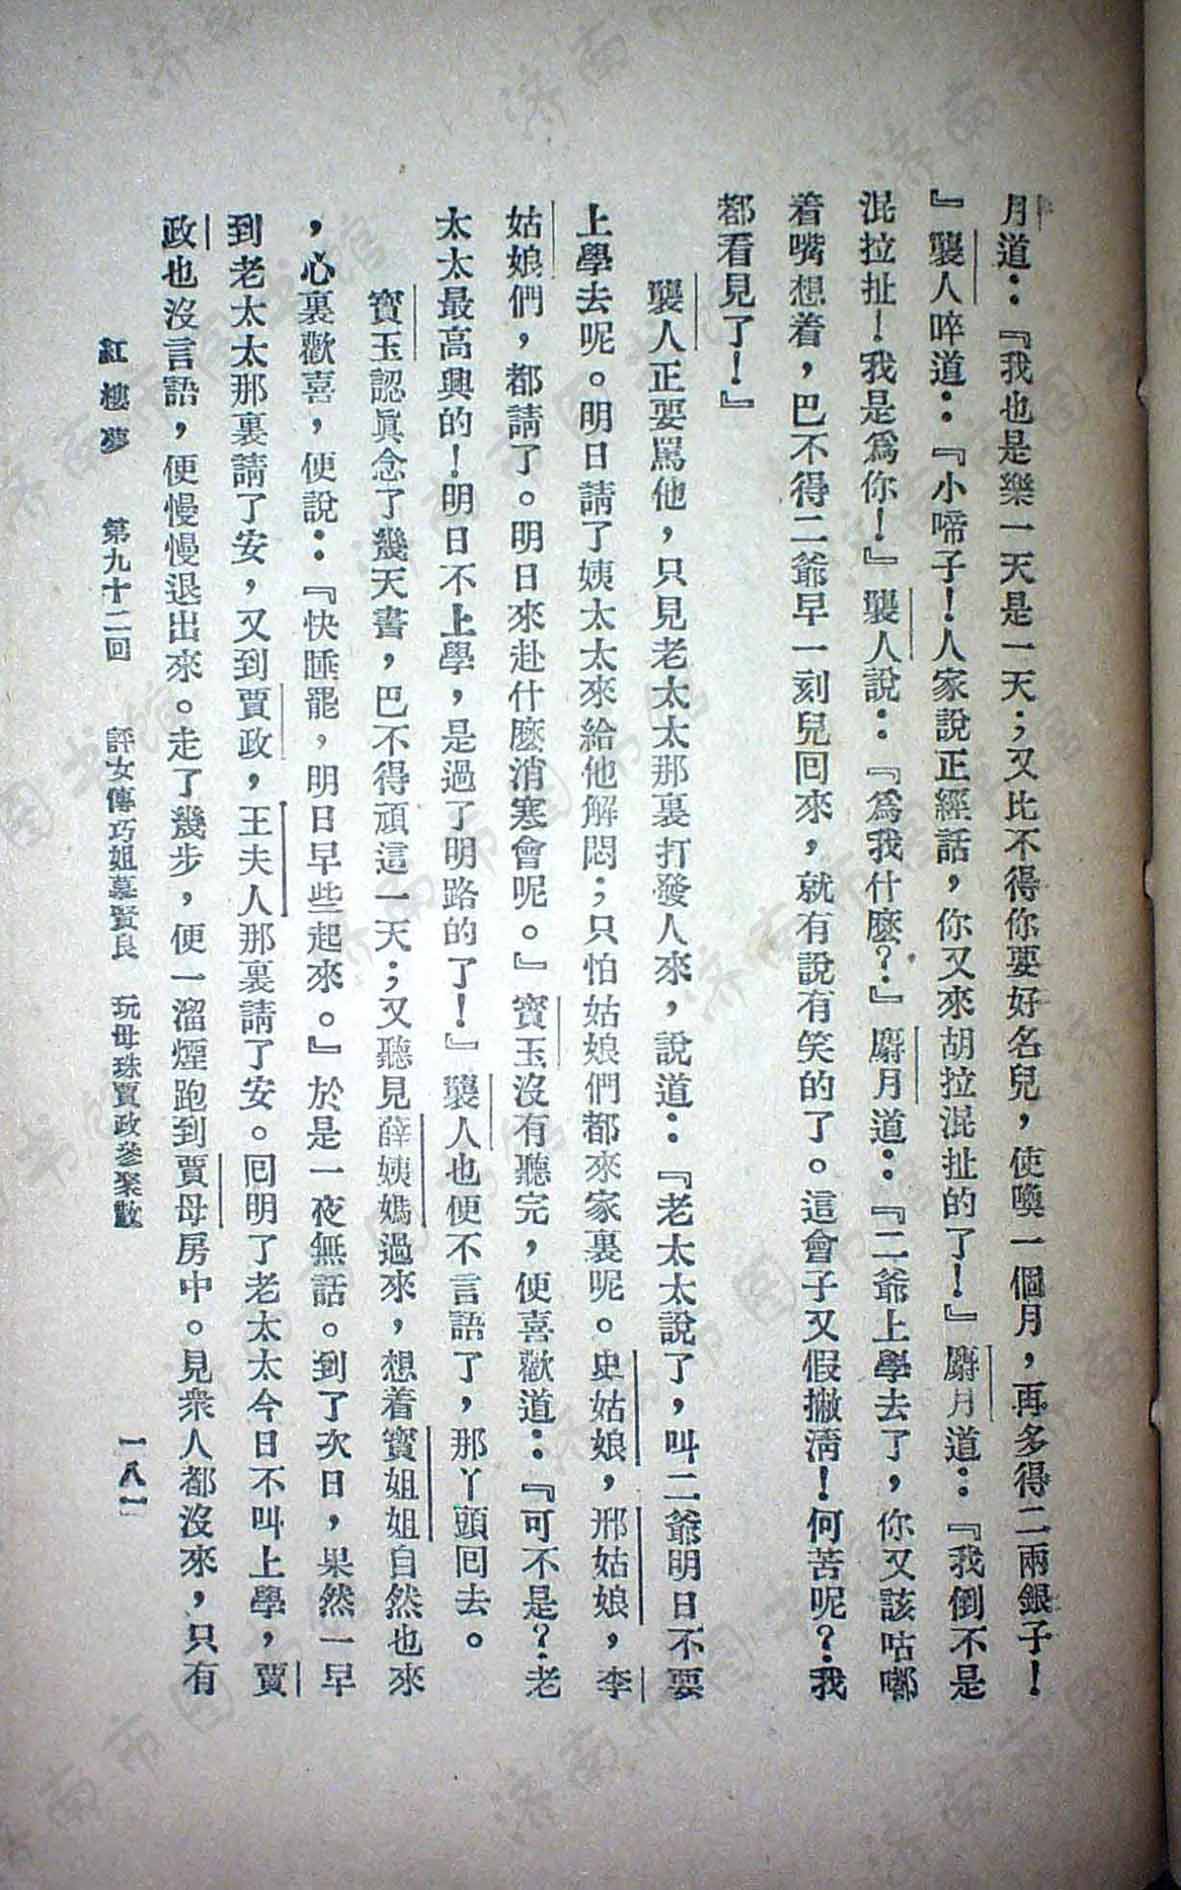 月道：『我也是樂一天是一天；又比不得你要好名兒，使喚一個月，再多得二兩銀子！
』襲人啐道：『小啼子！人家說正經話，你又來胡拉混扯的了！』麝月道：『我倒不是
混拉扯！我是爲你！』襲人說：『爲我什麽？』麝月道：『二爺上學去了，你又該咕嘟
着嘴想着，巴不得二爺早一刻兒囘來，就有說有笑的了。這會子又假撇淸！何苦呢？我
都看見了！』
襲人正要駡他，只見老太太那裏打發人來，說道：『老太太說了，叫二爺明日不要
上學去呢。明日請了姨太太來給他解悶；只怕姑娘們都來家裏呢。史姑娘，邢姑娘，李
姑娘們，都請了。明日來赴什麽消寒會呢。』寶玉沒有聽完，便喜歡道：『可不是？老
太太最高興的！明日不上學，是過了明路的了！』襲人也便不言語了，那丫頭囘去。
寶玉認眞念了幾天書，巴不得頑這一天；又聽見薛姨媽過來，想着寶姐姐自然也來
，心裏歡喜，便說：『快睡罷，明日早些起來。』於是一夜無話。到了次日，果然一早
到老太太那裏請了安，又到賈政，王夫人那裏請了安。囘明了老太太今日不叫上學，賈
政也沒言語，便慢慢退出來。走了幾步，便一溜煙跑到賈母房中。見衆人都沒來，只有
紅樓夢 第九十二囘 評女傳巧姐慕賢良 玩母珠賈政參聚散 一八一
济南市图书馆